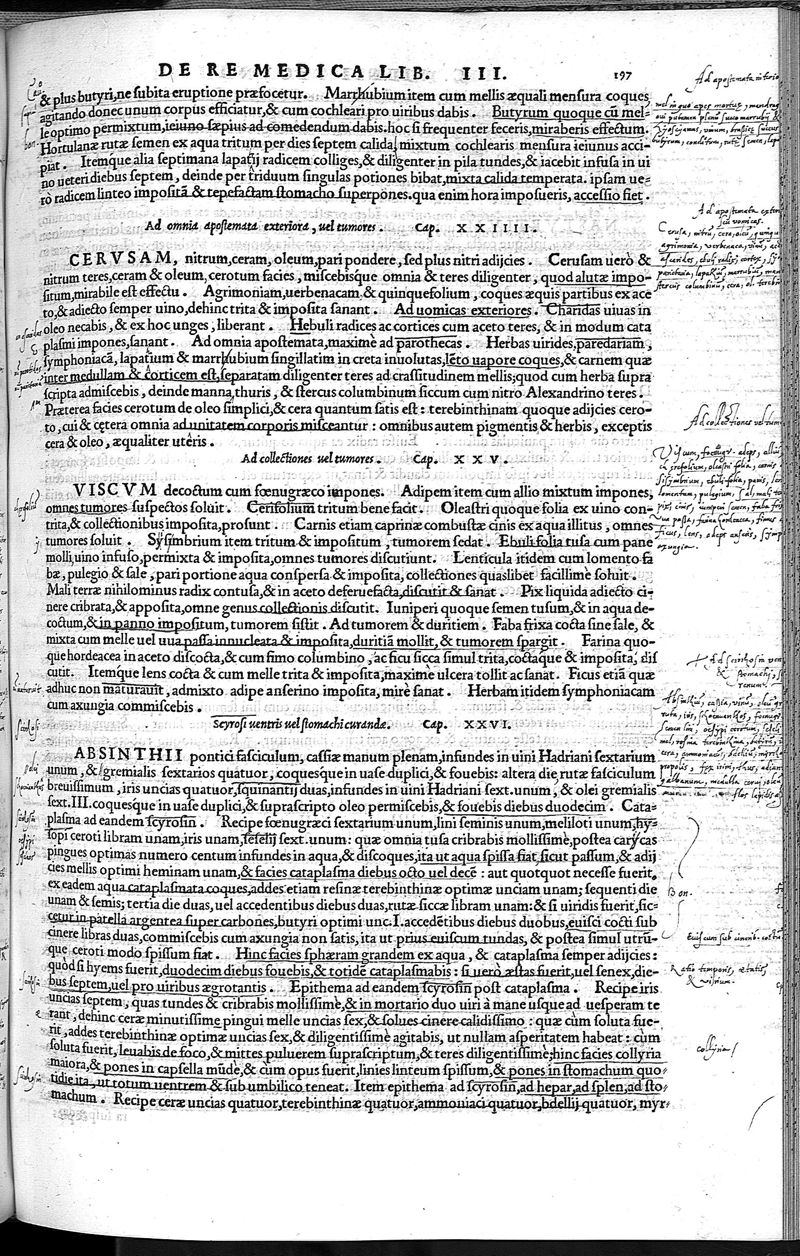 DE RE MEDICA LIB. III. 197
& plus butyri, ne subita eruptione præfocetur. Marrhubium item cum mellis æquali mensura coques,
agitando donec unum corpus efficiatur, & cum cochleari pro uiribus dabis. Butyrum quoque cũ mel-
le optimo permixtum, ieiuno sæpius ad comedendum dabis. hoc si frequenter feceris, miraberis effectum.
Hortulanæ rutæ semen ex aqua tritum per dies septem calida mixtum cochlearis mensura ieiunus acci-
piat. Itemque alia septimana lapatij radicem colliges, & diligenter in pila tundes, & iacebit infusa in ui
no ueteri diebus septem, deinde per triduum singulas potiones bibat, mixta calida temperata. ipsam ue-
rò radicem linteo impositã & tepefactam stomacho superpones. qua enim hora imposueris, accessio fiet.
Ad omnia apostemata exteriora, uel tumores. Cap. XXIIII.
CERVSAM, nitrum, ceram, oleum, pari pondere, sed plus nitri adijcies. Cerusam uerò &
nitrum teres, ceram & oleum, cerotum facies, miscebisque omnia & teres diligenter, quod alutæ impo-
situm, mirabile est effectu. Agrimoniam, uerbenacam & quinquefolium, coques æquis partibus ex ace
to, & adiecto semper uino, dehinc trita & imposita sanant. Ad uomicas exteriores. Charidas uiuas in
oleo necabis, & ex hoc unges, liberant. Hebuli radices ac cortices cum aceto teres, & in modum cata
plasmi impones, sanant. Ad omnia apostemata, maximè ad parothecas. Herbas uirides, paredariam,
symphoniacã, lapatium & marrhubium singillatim in creta inuolutas, lẽto uapore coques, & carnem quæ
inter medullam & corticem est, separatam diligenter teres ad crassitudinem mellis; quod cum herba supra
scripta admiscebis, deinde manna, thuris, & stercus columbinum siccum cum nitro Alexandrino teres.
Præterea facies cerotum de oleo simplici, & cera quantum satis est: terebinthinam quoque adijcies cero-
to, cui & cętera omnia ad unitatem corporis misceantur: omnibus autem pigmentis & herbis, exceptis
cera & oleo, æqualiter utêris.
Ad collectiones uel tumores. Cap. XXV.
VISCVM decoctum cum fœnugræco impones. Adipem item cum allio mixtum impones,
omnes tumores suspectos soluit. Cerifolium tritum bene facit. Oleastri quoque folia ex uino con-
trita, & collectionibus imposita, prosunt. Carnis etiam caprinæ combustæ cinis ex aqua illitus, omnes
tumores soluit. Sysimbrium item tritum & impositum, tumorem sedat. Ebuli folia tusa cum pane
molli, uino infuso, permixta & imposita, omnes tumores discutiunt. Lenticula itidem cum lomento fa
bæ, pulegio & sale, pari portione aqua conspersa & imposita, collectiones quaslibet facillimè soluit.
Mali terræ nihilominus radix contusa, & in aceto deferuefacta, discutit & sanat. Pix liquida adiecto ci-
nere cribrata, & apposita, omne genus collectionis discutit. Iuniperi quoque semen tusum, & in aqua de-
coctum, & in panno impositum, tumorem sistit. Ad tumorem & duritiem. Faba frixa cocta sine sale, &
mixta cum melle uel uua passa innucleata & imposita, duritiã mollit, & tumorem spargit. Farina quo-
que hordeacea in aceto discocta, & cum fimo columbino, ac ficu sicca simul trita, coctaque & imposita, dis
cutit. Itemque lens cocta & cum melle trita & imposita, maximè ulcera tollit ac sanat. Ficus etiã quæ
adhuc non maturauit, admixto adipe anserino imposita, mirè sanat. Herbam itidem symphoniacam
cum axungia commiscebis.
Scyrosi uentris uel stomachi curandæ. Cap. XXVI.
ABSINTHII pontici fasciculum, cassiæ manum plenam, infundes in uini Hadriani sextarium
unum, & gremialis sextarios quatuor, coquesque in uase duplici, & fouebis: altera die rutæ fasciculum
breuissimum, iris uncias quatuor, squinantij duas, infundes in uini Hadriani sext. unum, & olei gremialis
sext. III. coquesque in uase duplici, & suprascripto oleo permiscebis, & fouebis diebus duodecim. Cata-
plasma ad eandem scyrosin. Recipe fœnugræci sextarium unum, lini seminis unum, meliloti unum, hy-
sopi ceroti libram unam, iris unam, seselij sext. unum: quæ omnia tusa cribrabis mollissimè, postea carycas
pingues optimas numero centum infundes in aqua, & discoques, ita ut aqua spissa fiat, sicut passum, & adij
cies mellis optimi heminam unam, & facies cataplasma diebus octo uel decẽ: aut quotquot necesse fuerit,
ex eadem aqua cataplasmata coques, addes etiam resinæ terebinthinæ optimæ unciam unam; sequenti die
unam & semis; tertia die duas, uel accedentibus diebus duas, rutæ siccæ libram unam: & si uiridis fuerit, sic-
cetur in patella argentea super carbones, butyri optimi unc. I. accedẽtibus diebus duobus, euisci cocti sub
cinere libras duas, commiscebis cum axungia non satis, ita ut prius euiscum tundas, & postea simul utrũ-
que ceroti modo spissum fiat. Hinc facies sphæram grandem ex aqua, & cataplasma semper adijcies:
quòd si hyems fuerit, duodecim diebus fouebis, & totidẽ cataplasmabis: si uerò æstas fuerit, uel senex, die-
bus septem, uel pro uiribus ægrotantis. Epithema ad eandem scyrosin post cataplasma. Recipe iris
uncias septem, quas tundes & cribrabis mollissimè, & in mortario duo uiri à mane usque ad uesperam te
rant, dehinc ceræ minutissime pingui melle uncias sex, & solues cinere calidissimo: quæ cùm soluta fue-
rit, addes terebinthinæ optimæ uncias sex, & diligentissimè agitabis, ut nullam asperitatem habeat: cùm
soluta fuerit, leuabis de foco, & mittes puluerem suprascriptum, & teres diligentissimè; hinc facies collyria
maiora, & pones in capsella mũdè, & cum opus fuerit, linies linteum spissum, & pones in stomachum quo-
tidie ita, ut totum uentrem & sub umbilico teneat. Item epithema ad scyrosin, ad hepar, ad splen, ad sto-
machum. Recipe ceræ uncias quatuor, terebinthinæ quatuor, ammoniaci quatuor, bdellij quatuor, myr-
Ad collectiones uel tumo
Bon.
Euiscum sub cinerib. coctu
Ratio temporis, ætatis,
& virium.
collyria